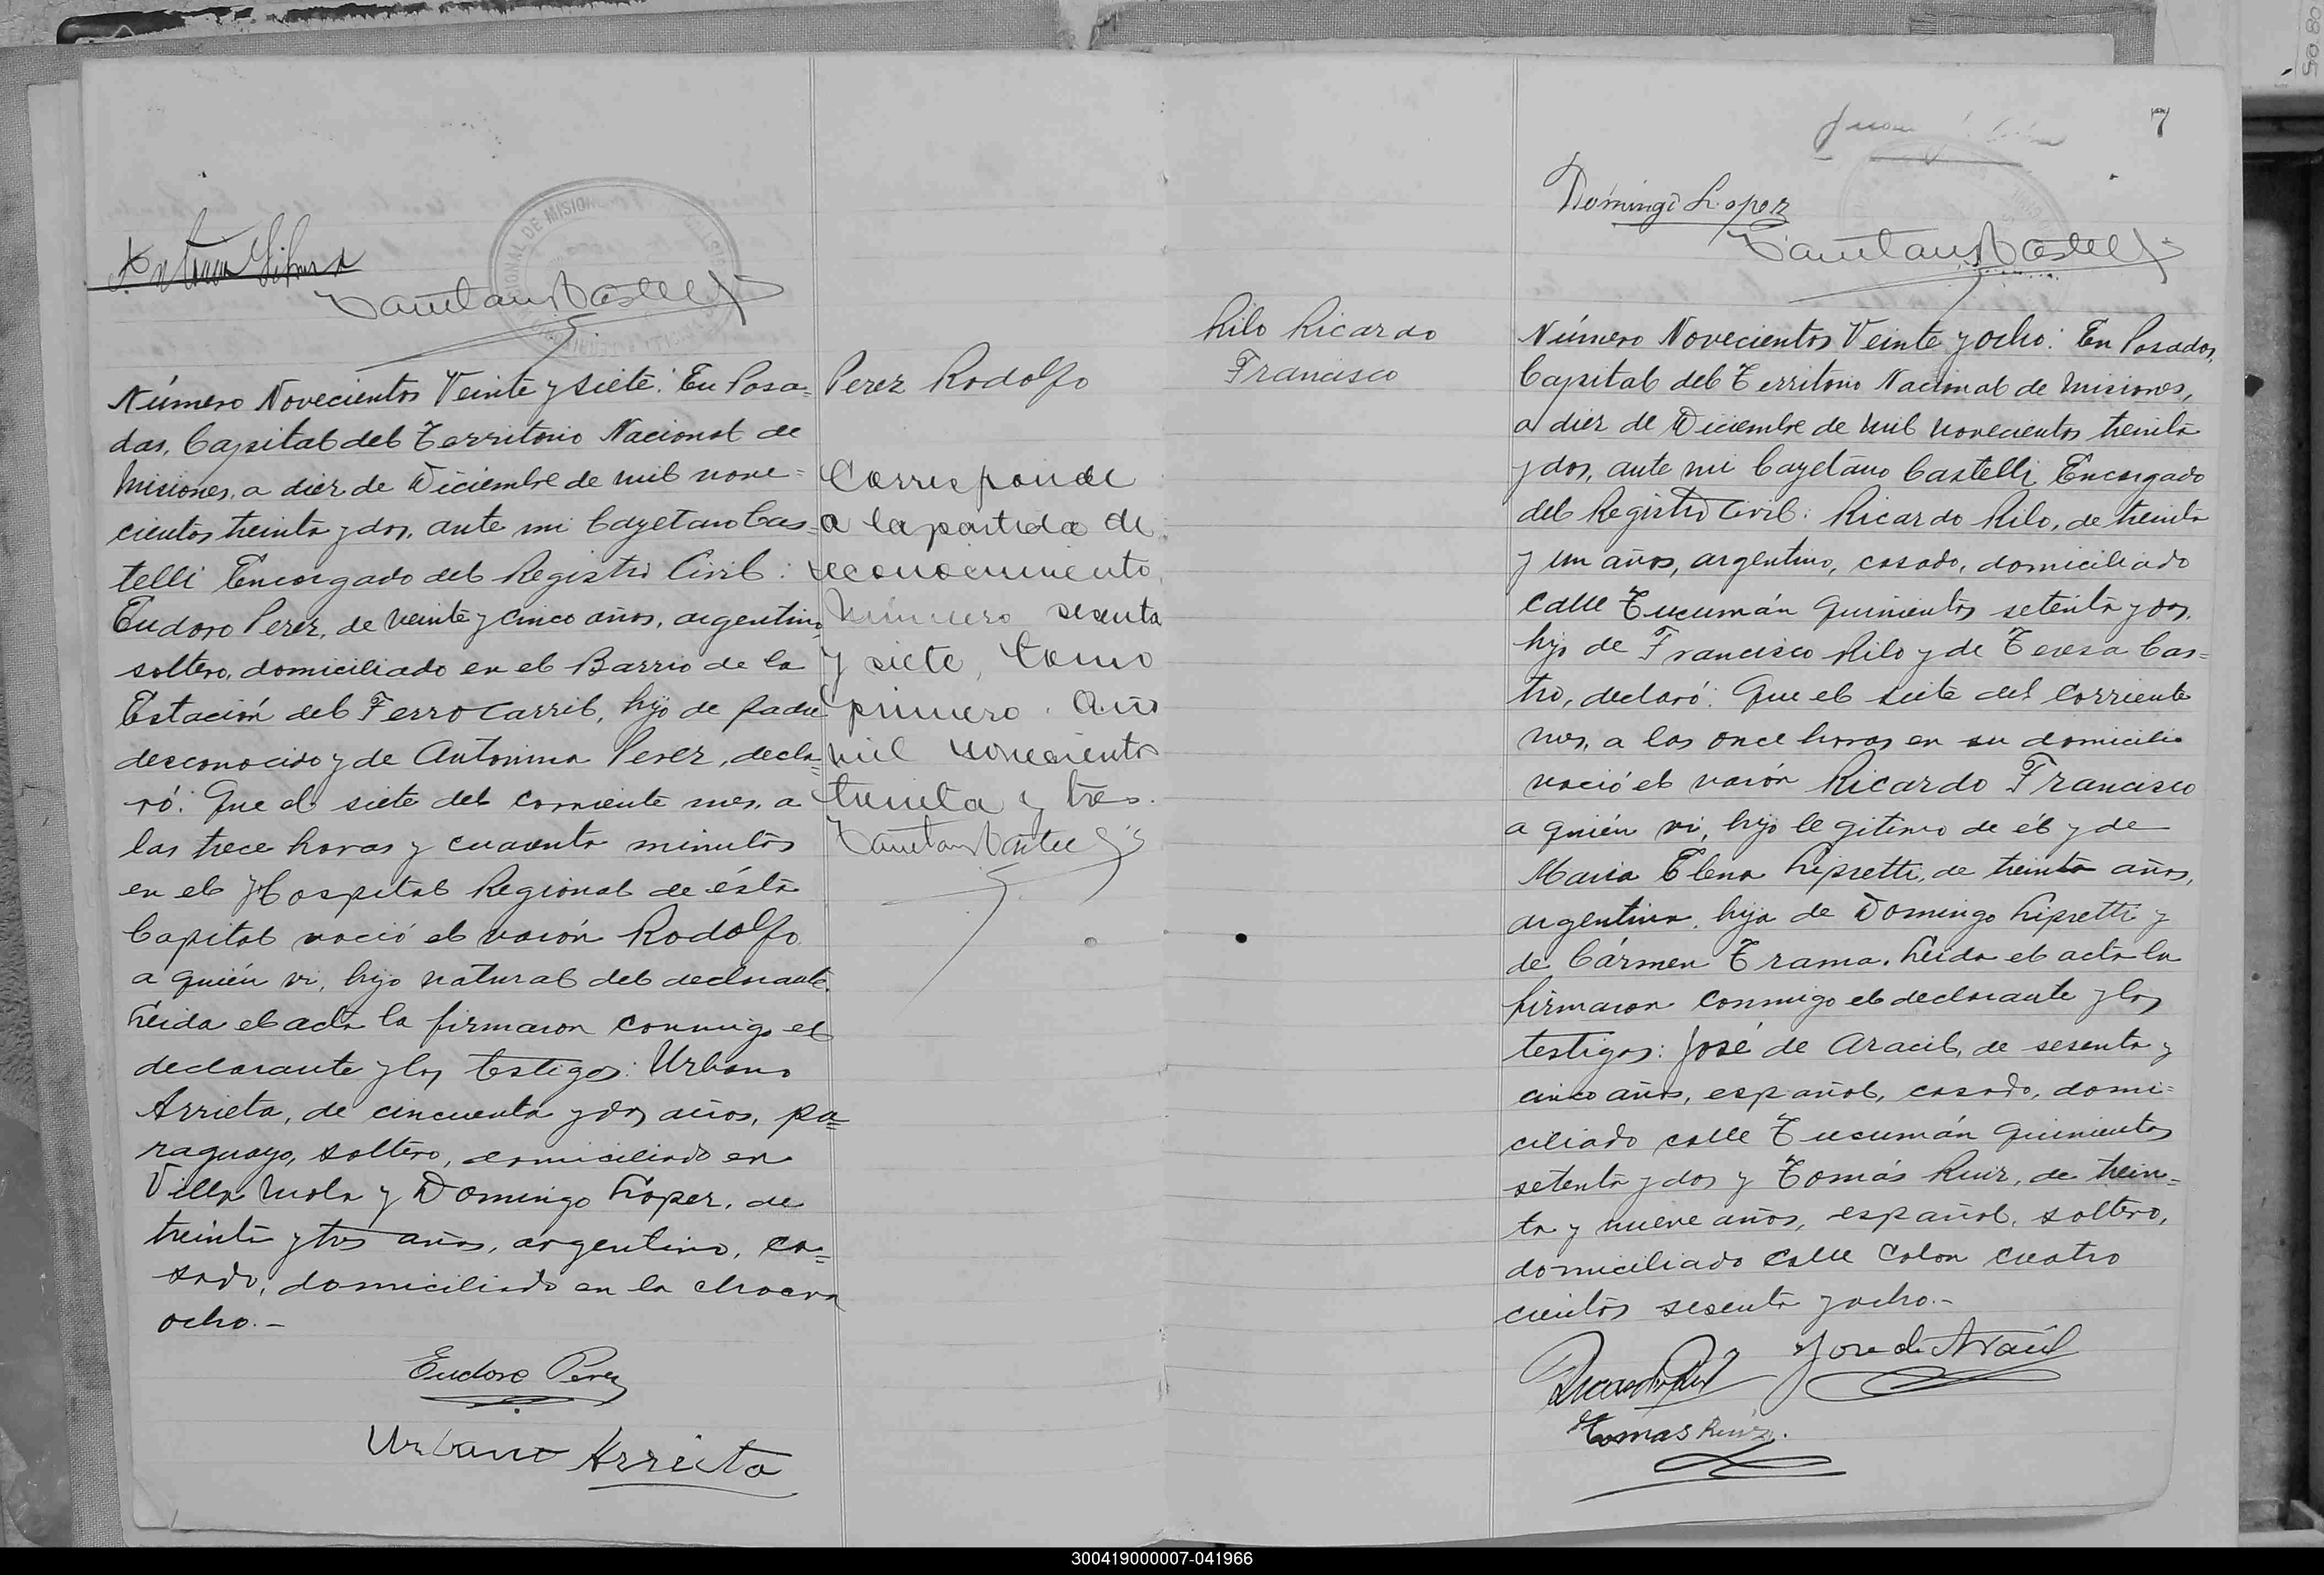 7
Cayetano Castelli
Número Novecientos Veinte y siete: En Posa=
das, Capital del Territorio Nacional de
Misiones, a diez de Diciembre de mil nove=
cientos treinta y dos, ante mi Cayetano Cas=
telli Encargado del Registro Civil:
Eudoro Perez, de veinte y cinco años, argentino,
soltero, domiciliado en el Barrio de la
Estación del Ferrocarril, hijo de padre
desconocido y de Antonina Perez, decla=
ró: Que el siete del corriente mes, a
las trece horas y cuarenta minutos
en el Hospital Regional de ésta
Capital nació el varón Rodolfo
a quién vi, hijo natural del declarante.
Leida el acta la firmaron conmigo el
declarante y los testigos: Urbano
Arrieta, de cincuenta y dos años, pa=
raguayo, soltero, domiciliado en
Villa Mola y Domingo Lopez, de
treinta y tres años, argentino, ca=
sado, domiciliado en la chacra
ocho.-
Eudoro Perez
Urbano Arrieta
Perez Rodolfo
Corresponde
a la partida de
reconocimiento
número sesenta
y siete, tomo
primero. Año
mil novecientos
treinta y tres.
Cayetano Castelli
Rilo Ricardo
Francisco
Domingo Lopez
Cayetano Castelli
Número Novecientos Veinte y ocho: En Posadas,
Capital del Territorio Nacional de Misiones,
a diez de Diciembre de mil novecientos treinta
y dos, ante mi Cayetano Castelli Encargado
del Registro Civil: Ricardo Rilo, de treinta
y un años, argentino, casado, domiciliado
calle Tucumán quinientos setenta y dos,
hijo de Francisco Rilo y de Teresa Cas=
tro, declaró: Que el siete del corriente
mes, a las once horas en su domicilio
nació el varón Ricardo Francisco
a quién vi, hijo legitimo de él y de
Maria Elena Lipretti, de treinta años,
argentina, hija de Domingo Lipretti y
de Cármen Trama. Leida el acta la
firmaron conmigo el declarante y los
testigos: José de Aracil, de sesenta y
cinco años, español, casado, domi=
ciliado calle Tucumán quinientos
setenta y dos y Tomás Ruiz, de trein=
ta y nueve años, español, soltero,
domiciliado calle Colon cuatro
cientos sesenta y ocho.-
Ricardo Rilo
Jose de Aracil
Tomás Ruiz.
300419000007-041966